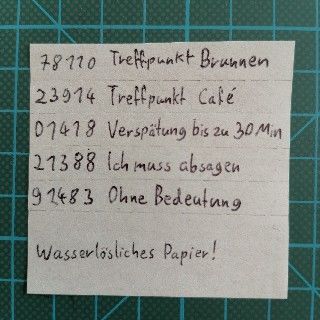 78110 Treffpunkt Brunnen
23914 Treffpunkt Café
01418 Verspätung bis zu 30 Min
21388 Ich muss absagen
91483 Ohne Bedeutung
Wasserlösliches Papier!